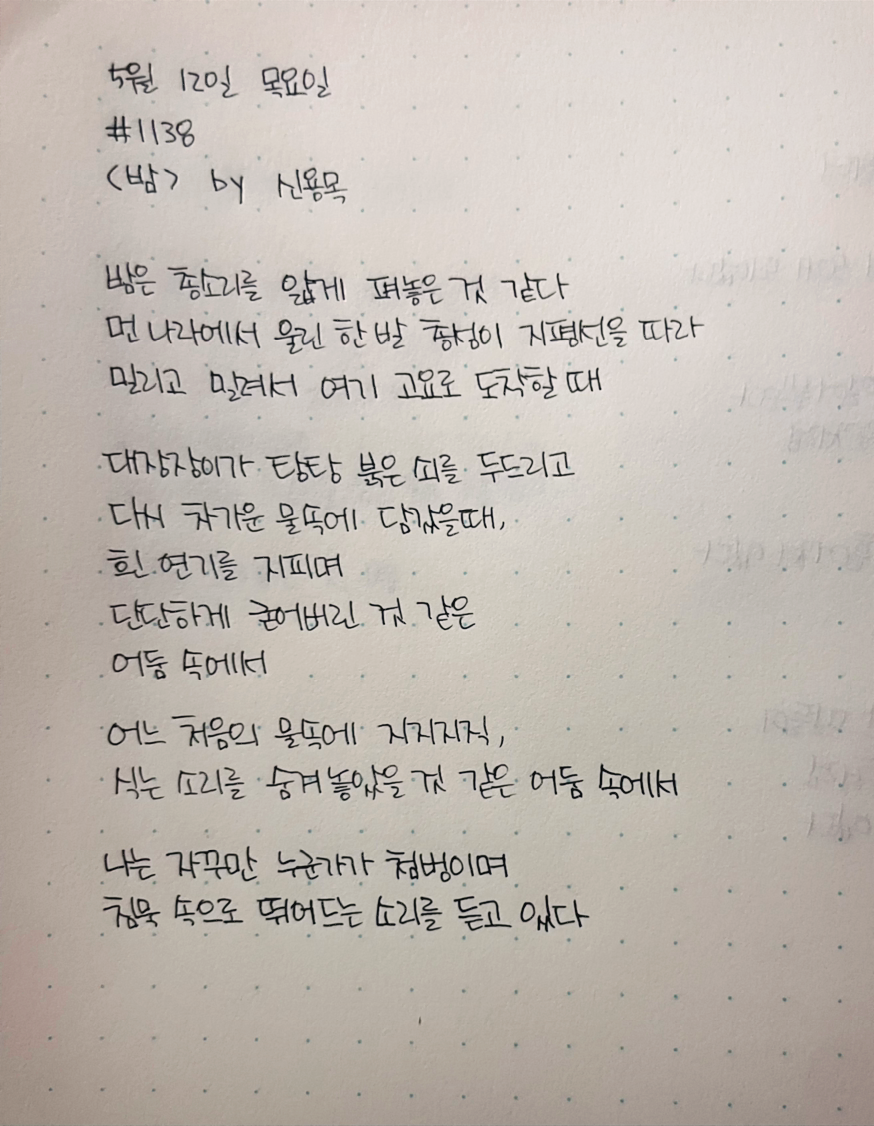 5월 12일 목요일
#1138
<밤> by 신용목
밤은 총소리를 얇게 펴놓은 것 같다
먼 나라에서 울린 한 발 총성이 지평선을 따라
밀리고 밀려서 여기 고요로 도착할 때
대장장이가 탕탕 붉은 쇠를 두드리고
다시 차가운 물속에 담갔을때,
흰 연기를 지피며
단단하게 굳어버린 것 같은
어둠 속에서
어느 처음의 물속에 지지지직,
식는 소리를 숨겨놓았을 것 같은 어둠 속에서
나는 자꾸만 누군가가 첨벙이며
침묵 속으로 뛰어드는 소리를 듣고 있다